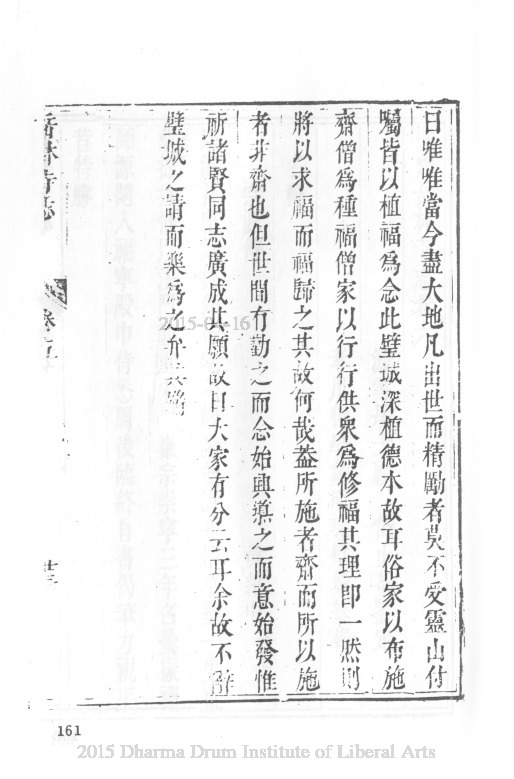 曰唯唯當今盡大地凡出世而精勵者莫不受靈山付
囑皆以植福爲念此壁城深植德本故耳俗家以布施
齋僧爲種福僧家以行行供衆爲修福其理即一然則
將以求福而福歸之其故何哉葢所施者齋而所以施
者非齋也但世間有勸之而念始興導之而意始發惟
祈諸賢同志廣成其願故曰大家有分云耳余故不辭
壁城之請而樂爲之弁
寺志
卷五
廿三
2015-0 -16
161
2015 Dharma Drum Institute of Liberal Arts